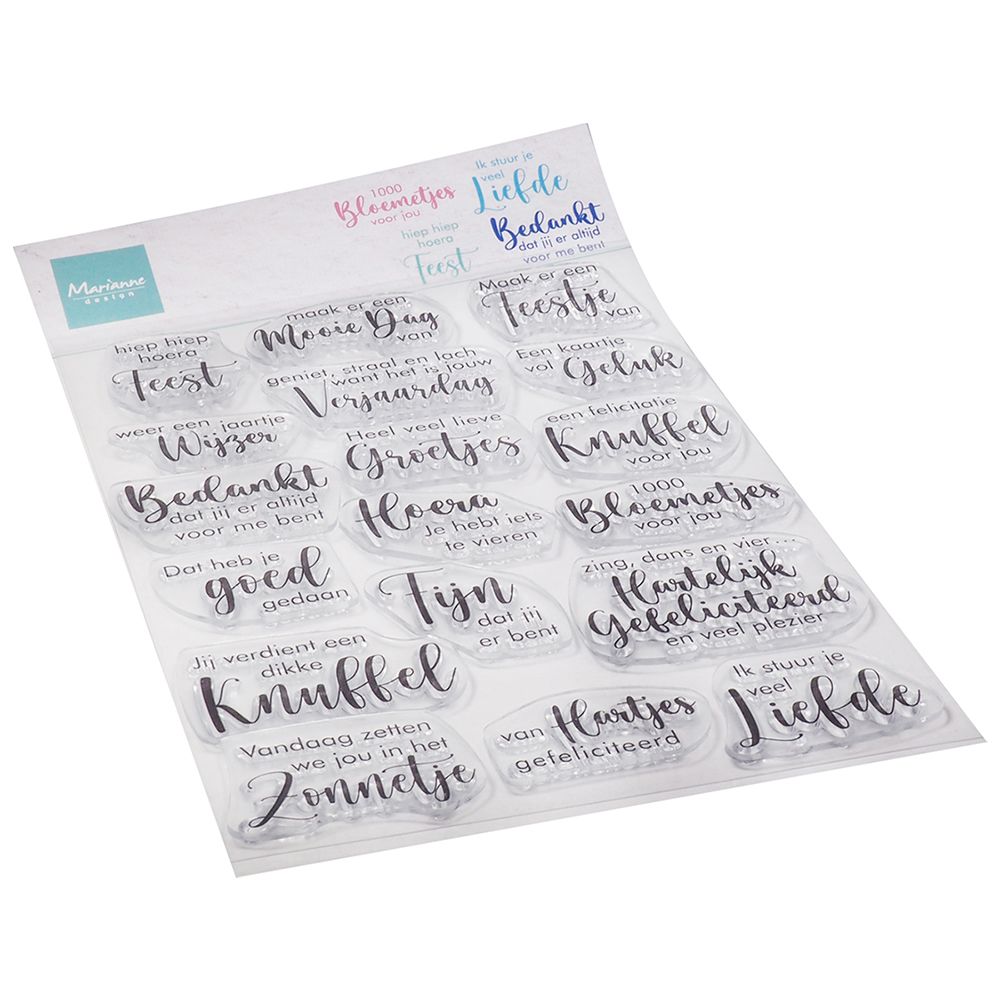 1000
Bloemetjes
voor jou
Ik stuur je
veel
Liefde
hiep hiep
hoera
Feest
Bedankt
dat jij er altijd
voor me bent
Marianne
design
hiep hiep
hoera
Feest
maak er een
Mooie Dag
van
Maak er een
Feestje
van
geniet, straal en lach
want het is jouw
Verjaardag
Een kaartje
vol Geluk
weer een jaartje
Wijzer
Heel veel lieve
Groetjes
een felicitatie
Knuffel
voor jou
Bedankt
dat jij er altijd
voor me bent
Hoera
Je hebt iets
te vieren
1000
Bloemetjes
voor jou
Dat heb je
goed
gedaan
Fijn
dat jij
er bent
zing, dans en vier...
Hartelijk
Gefeliciteerd
en veel plezier
Jij verdient een
dikke
Knuffel
van Hartjes
gefeliciteerd
Ik stuur je
veel
Liefde
Vandaag zetten
we jou in het
Zonnetje